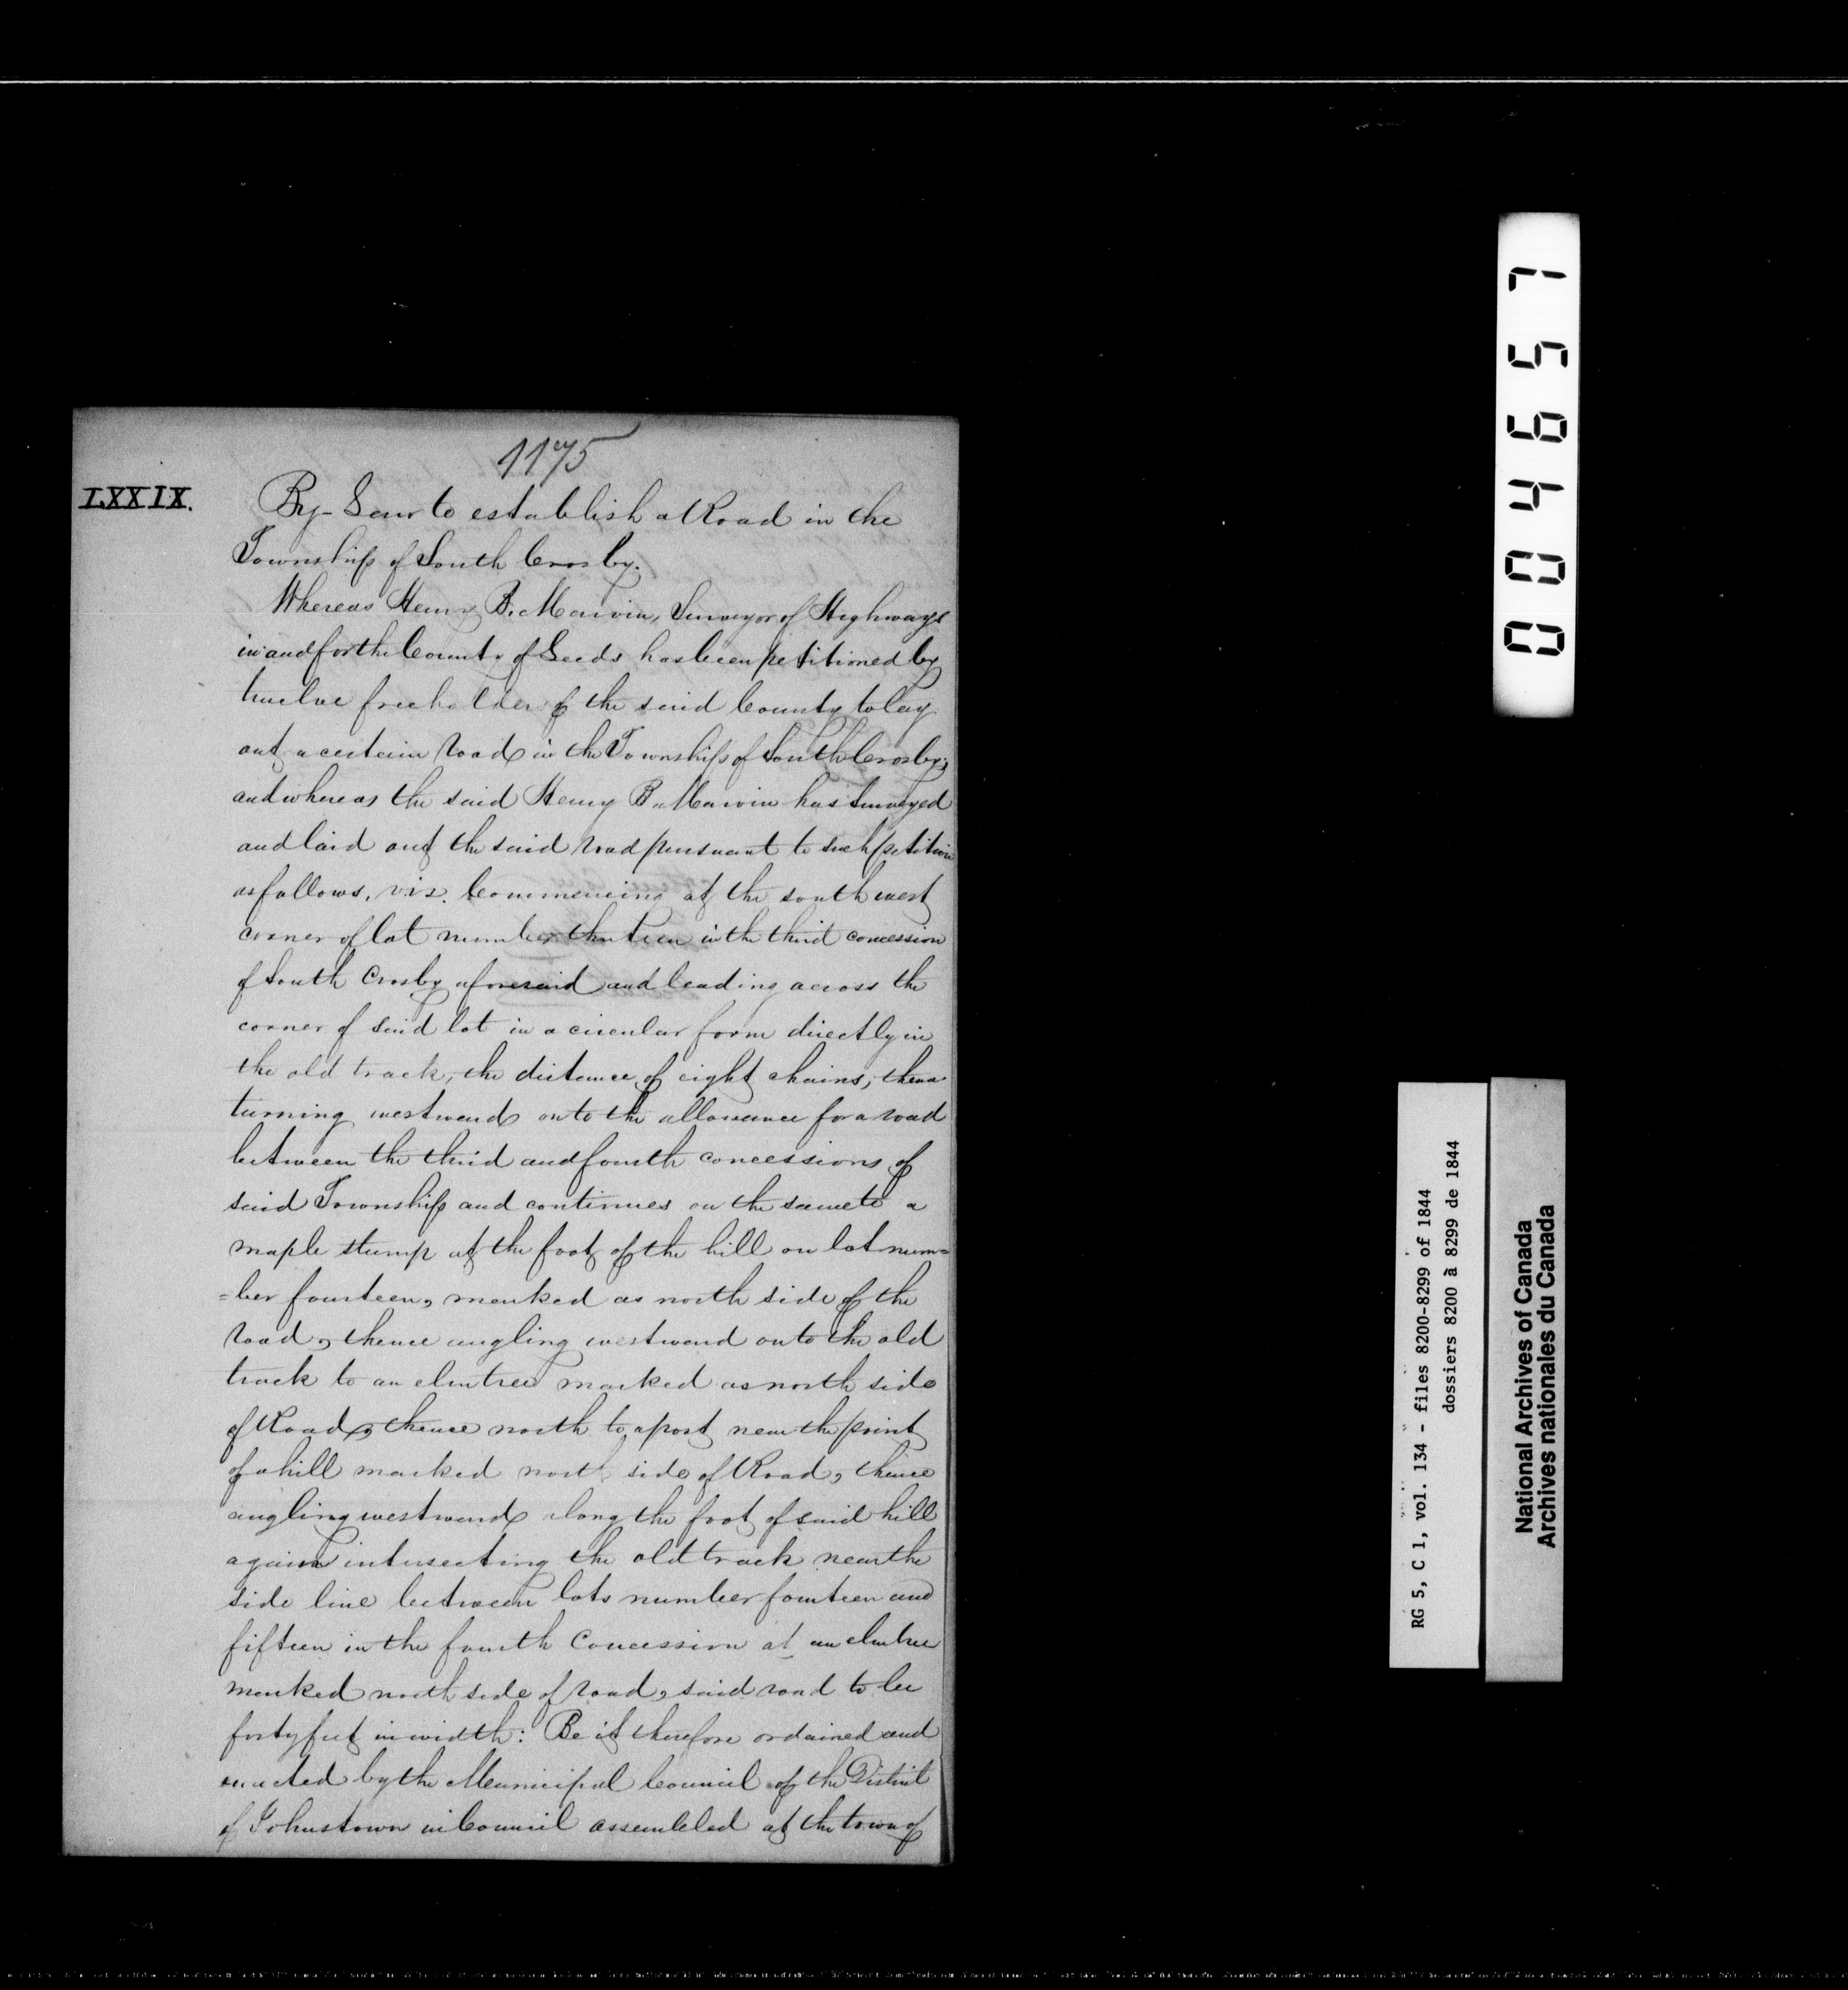 1175
LXXIX.
By-Law to establish a Road in the
Township of South Crosby.
Whereas Henry B. Marvin, Surveyor of Highways
in and for the County of Leeds has been petitioned by
twelve freeholders of the said County to lay
out a certain road in the Township of South Crosby;
and whereas the said Henry B. Marvin has surveyed
and laid out the said road pursuant to such petition
as follows, viz. Commencing at the south west
corner of lot number thirteen in the third concession
of South Crosby aforesaid and leading across the
corner of said lot in a circular form directly in
the old track, the distance of eight chains, thence
turning westward onto the allowance for a road
between the third and fourth concessions of
said Township and continues on the same to a
maple stump at the foot of the hill on lot num=
=ber fourteen, marked as north side of the
road, thence angling westward onto the old
track to an elm tree marked as north side
of Road, thence north to a post near the point
of a hill marked north side of Road, thence
angling westward along the foot of said hill
again intersecting the old track near the
side line between lots number fourteen and
fifteen in the fourth Concession at an elm tree
marked north side of road, said road to be
forty feet in width: Be it therefore ordained and
enacted by the Municipal Council of the District
of Johnstown in Council assembled at the town of
004657
RG 5, C 1, vol. 134 - files 8200-8299 of 1844
dossiers 8200 à 8299 de 1844
National Archives of Canada
Archives nationales du Canada